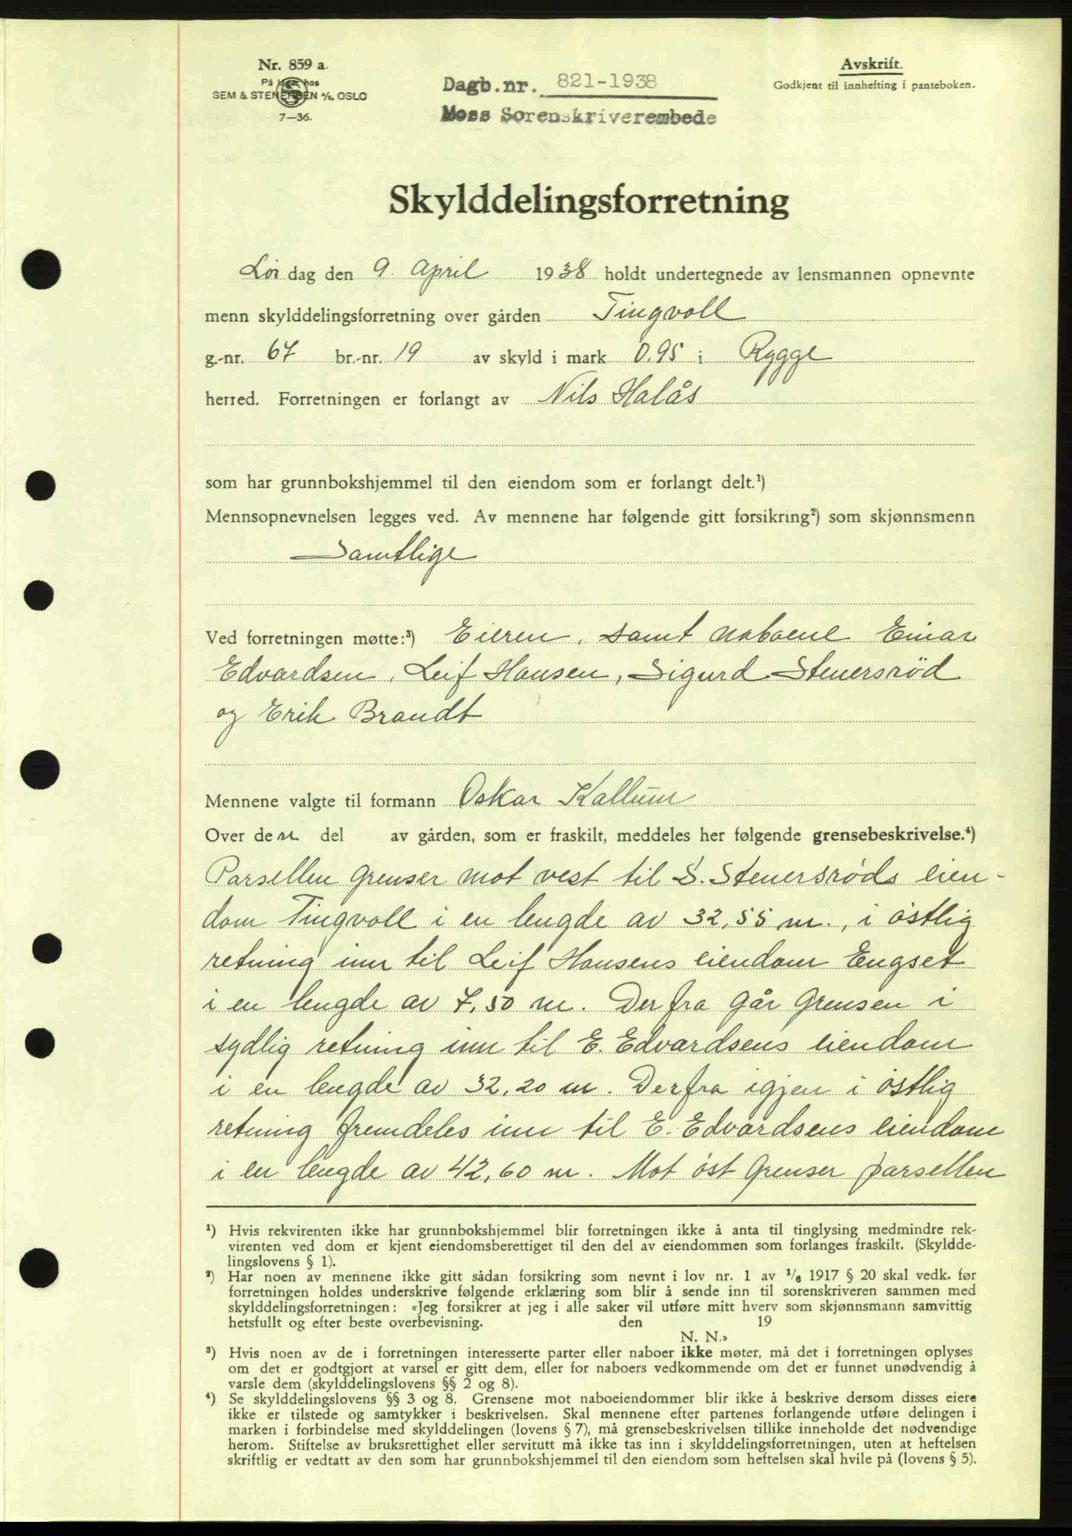 Nr. 859 a.
På lager hos
SEM & STENERSEN A/S, OSLO
7—36.
Dagb.nr. 821-1938
Moss Sorenskriverembede
Avskrift.
Godkjent til innhefting i panteboken.
Skylddelingsforretning
Lör dag den 9. April 1938 holdt undertegnede av lensmannen opnevnte
menn skylddelingsforretning over gården Tingvoll
g.-nr. 67 br.-nr. 19 av skyld i mark 0.95 i Rygge
herred. Forretningen er forlangt av Nils Halås
som har grunnbokshjemmel til den eiendom som er forlangt delt.¹)
Mennsopnevnelsen legges ved. Av mennene har følgende gitt forsikring²) som skjønnsmenn
Samtlige
Ved forretningen møtte:³) Eieren, samt naboene Einar
Edvardsen, Leif Hansen, Sigurd Stenersröd
og Erik Brandt
Mennene valgte til formann Oskar Kallum
Over den del av gården, som er fraskilt, meddeles her følgende grensebeskrivelse.⁴)
Parsellen grenser mot vest til S. Stenersröds eien-
dom Tingvoll i en lengde av 32,55 m., i östlig
retning inn til Leif Hansens eiendom Engset
i en lengde av 7,50 m. Derfra går grensen i
sydlig retning inn til E. Edvardsens eiendom
i en lengde av 32,20 m. Derfra igjen i östlig
retning fremdeles inn til E. Edvardsens eiendom
i en lengde av 42,60 m. Mot öst grenser parsellen
¹) Hvis rekvirenten ikke har grunnbokshjemmel blir forretningen ikke å anta til tinglysing medmindre rek-
virenten ved dom er kjent eiendomsberettiget til den del av eiendommen som forlanges fraskilt. (Skyldde-
lingslovens § 1).
²) Har noen av mennene ikke gitt sådan forsikring som nevnt i lov nr. 1 av ¹/₆ 1917 § 20 skal vedk. før
forretningen holdes underskrive følgende erklæring som blir å sende inn til sorenskriveren sammen med
skylddelingsforretningen: «Jeg forsikrer at jeg i alle saker vil utføre mitt hverv som skjønnsmann samvittig
hetsfullt og efter beste overbevisning. den 19
N. N.»
³) Hvis noen av de i forretningen interesserte parter eller naboer ikke møter, må det i forretningen oplyses
om det er godtgjort at varsel er gitt dem, eller for naboers vedkommende om det er funnet unødvendig å
varsle dem (skylddelingslovens §§ 2 og 8).
⁴) Se skylddelingslovens §§ 3 og 8. Grensene mot naboeiendommer blir ikke å beskrive dersom disses eiere
ikke er tilstede og samtykker i beskrivelsen. Skal mennene efter partenes forlangende utføre delingen i
marken i forbindelse med skylddelingen (lovens § 7), må grensebeskrivelsen tillike inneholde det nødvendige
herom. Stiftelse av bruksrettighet eller servitutt må ikke tas inn i skylddelingsforretningen, uten at heftelsen
skriftlig er vedtatt av den som har grunnbokshjemmel til den eiendom som heftelsen skal hvile på (lovens § 5).